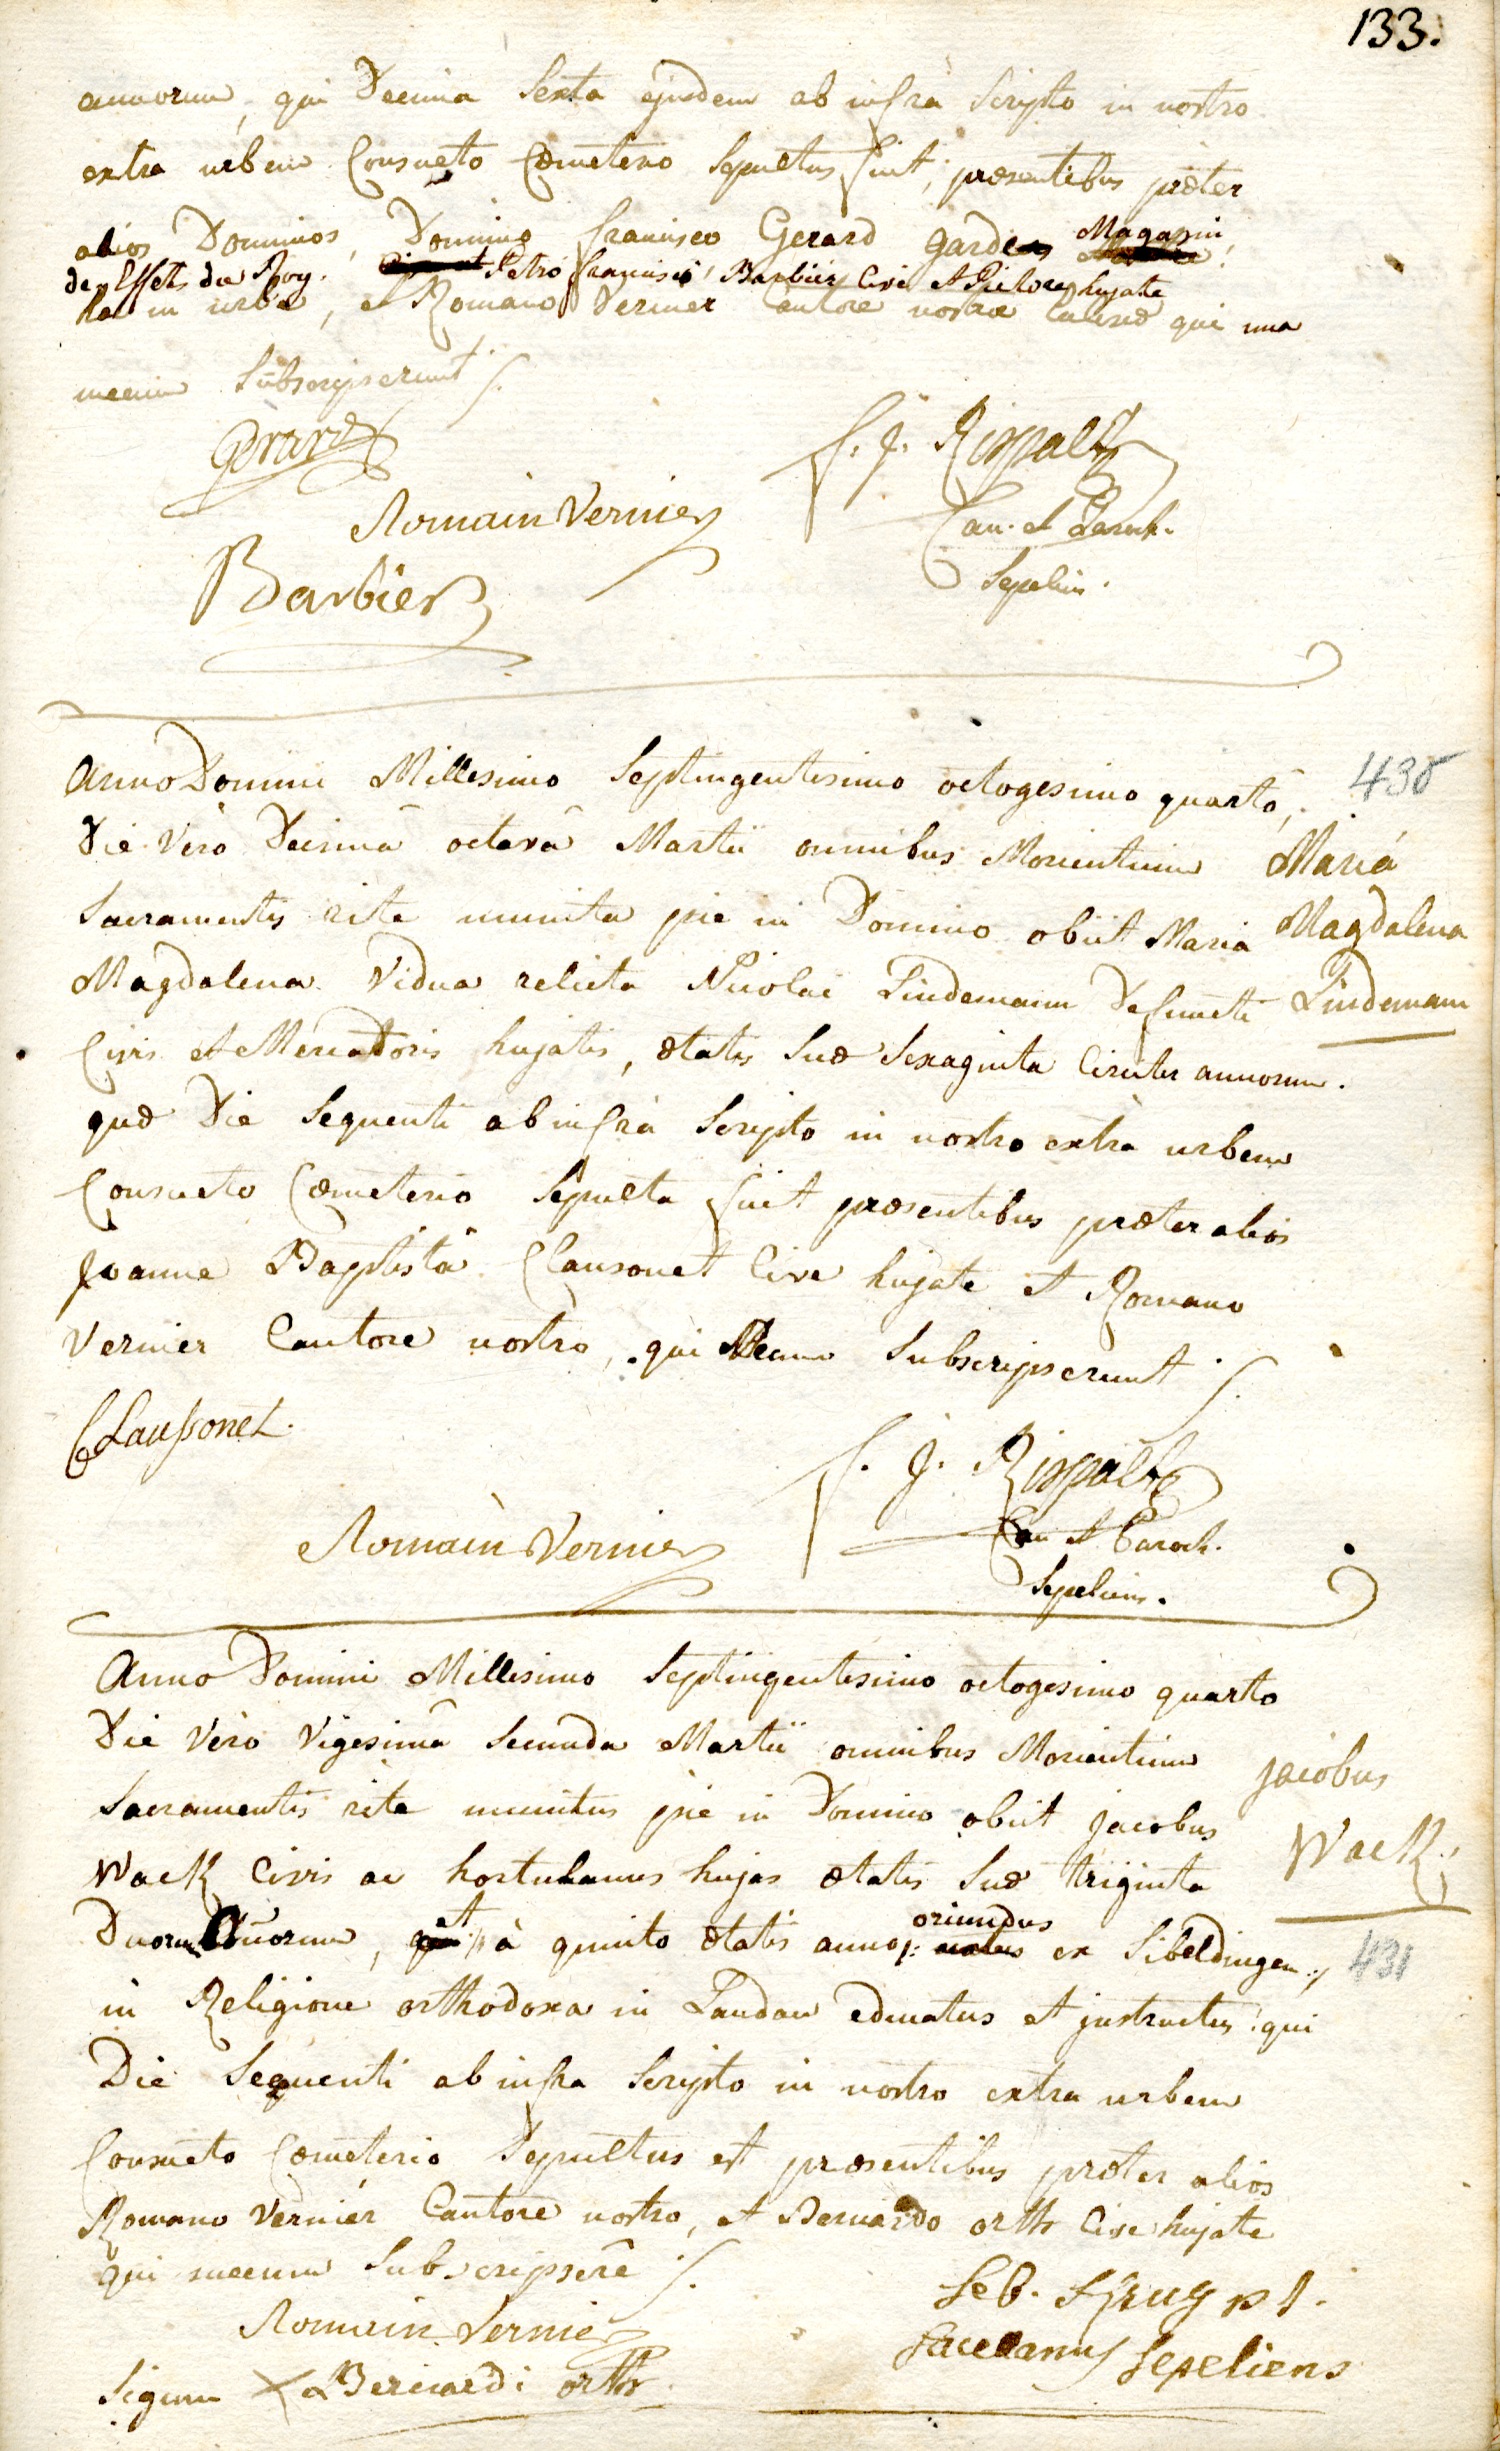 133.
annorum, qui Decima Sexta ejusdem ab infrà Scripto in nostro
extra urbem Consueto Cœmeterio Sepultus fuit, præsentibus præter
alios Dominos, Domino francisco Gerard garde Magasin
des Effets du Roy. Petro francisco Barbier Cive et Pictore hujate
hac in urbe, et Romano Vernier Cantore nostræ qui una
mecum Subscripserunt
Gerard
F. J. Rispalt
Romain Vernier
Can. et Paroch.
Barbier
Sepeliens.
Anno Domini Millesimo Septingentesimo octogesimo quarto,
430
Die Verò Decimâ octavâ Martii omnibus Morientium
Maria
Sacramentis rite munita pie in Domino obiit Maria
Magdalena
Magdalena Vidua relicta Nicolai Lindemann Defuncti
Lindemann
Civis et Mercatoris hujatis, ætatis Suæ Sexaginta Circiter annorum.
quæ Die Sequenti ab infrà Scripto in nostro extrà urbem
Consueto Cœmeterio Sepulta fuit præsentibus præter alios
Joanne Baptistâ Clausonet Cive hujate et Romano
Vernier Cantore nostro, qui Mecum Subscripserunt
Claussonet.
F. J. Rispalt
Romain Vernier
Can et Paroch.
Sepeliens.
Anno Domini Millesimo Septingentesimo octogesimo quarto
Die Verò Vigesimâ Secunda Martii omnibus Morientium
Jacobus
Sacramentis rite munitus pie in Domino obiit Jacobus
Wack
Wack Civis ac hortulanus hujas ætatis Suæ triginta
Duorum Annorum, et à quinto ætatis anno oriundus ex Sibeldingen
431
in Religione orthodoxa in Landau educatus et instructus qui
Die Sequenti ab infra Scripto in nostro extra urbem
Consueto Cœmeterio Sepultus est præsentibus præter alios
Romano Vernier Cantore nostro, et Bernardo orth Cive hujate
qui mecum Subscripsere
Seb. Krug
Romain Vernier
Sacellanus Sepeliens
Signum X Bernardi orth